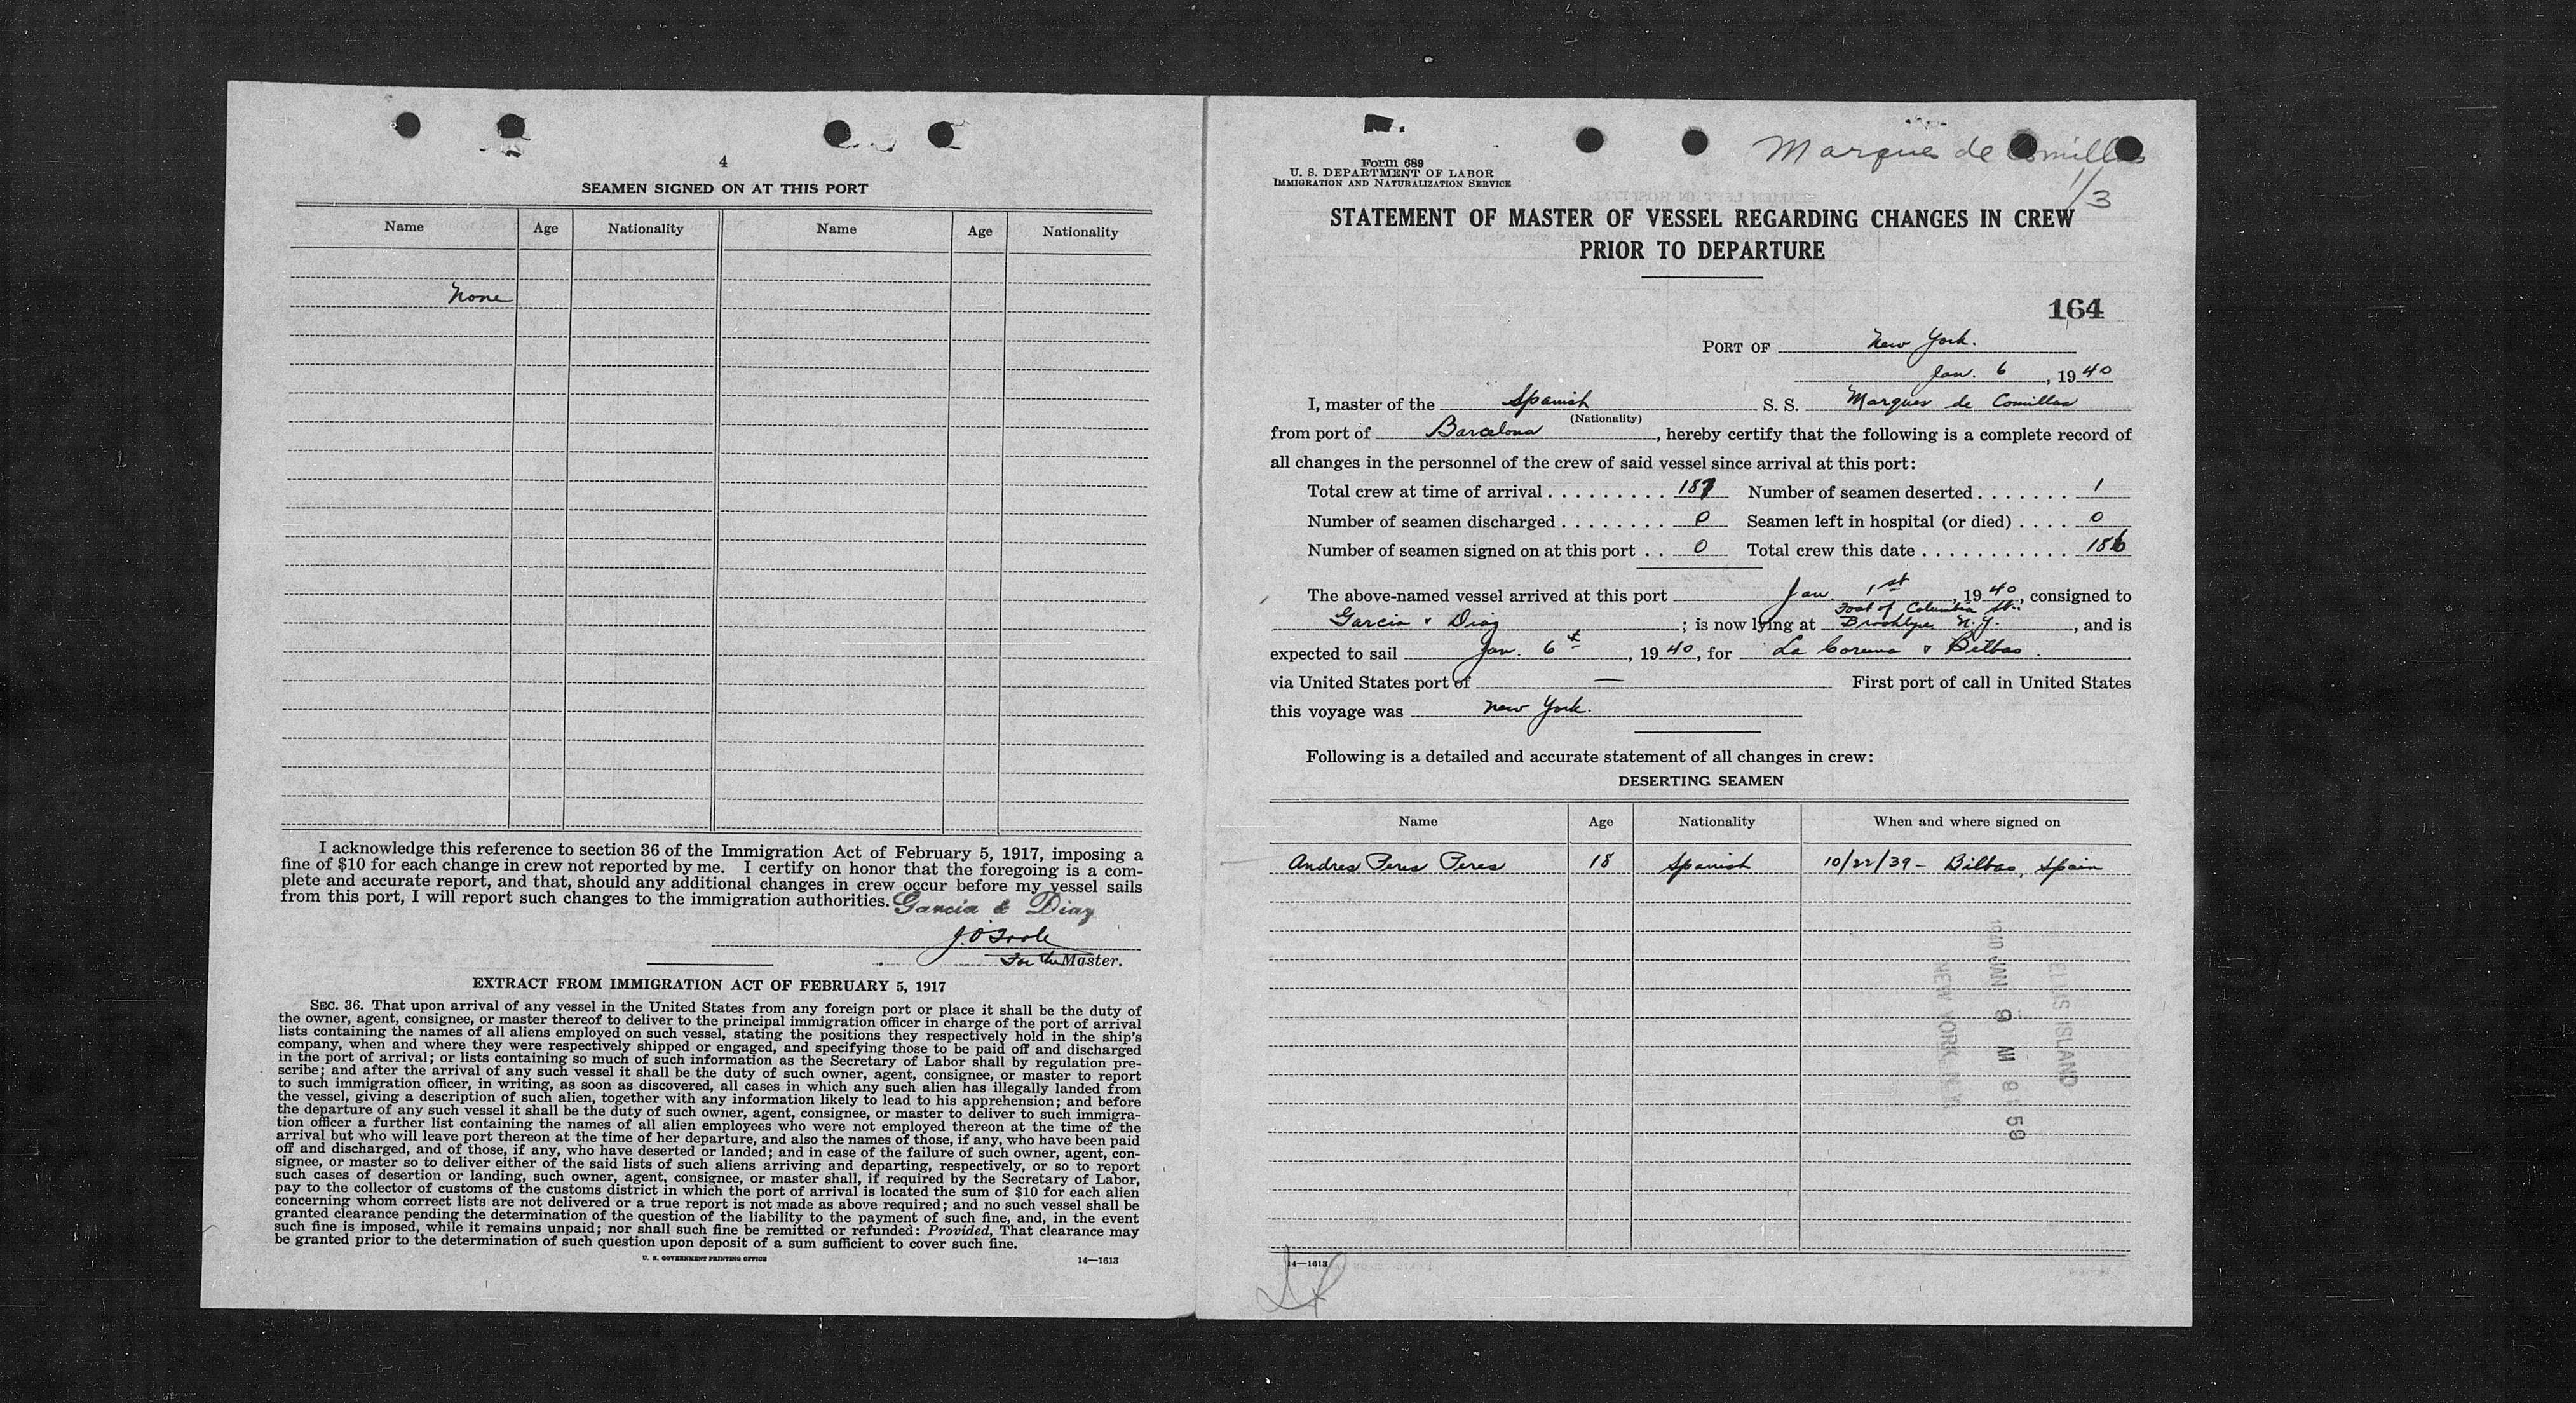 4
SEAMEN SIGNED ON AT THIS PORT
Name Age Nationality Name Age Nationality
None
I acknowledge this reference to section 36 of the Immigration Act of February 5, 1917, imposing a
fine of $10 for each change in crew not reported by me. I certify on honor that the foregoing is a com-
plete and accurate report, and that, should any additional changes in crew occur before my vessel sails
from this port, I will report such changes to the immigration authorities. Garcia & Diaz
J. O'Toole
For the Master.
EXTRACT FROM IMMIGRATION ACT OF FEBRUARY 5, 1917
SEC. 36. That upon arrival of any vessel in the United States from any foreign port or place it shall be the duty of
the owner, agent, consignee, or master thereof to deliver to the principal immigration officer in charge of the port of arrival
lists containing the names of all aliens employed on such vessel, stating the positions they respectively hold in the ship's
company, when and where they were respectively shipped or engaged, and specifying those to be paid off and discharged
in the port of arrival; or lists containing so much of such information as the Secretary of Labor shall by regulation pre-
scribe; and after the arrival of any such vessel it shall be the duty of such owner, agent, consignee, or master to report
to such immigration officer, in writing, as soon as discovered, all cases in which any such alien has illegally landed from
the vessel, giving a description of such alien, together with any information likely to lead to his apprehension; and before
the departure of any such vessel it shall be the duty of such owner, agent, consignee, or master to deliver to such immigra-
tion officer a further list containing the names of all alien employees who were not employed thereon at the time of the
arrival but who will leave port thereon at the time of her departure, and also the names of those, if any, who have been paid
off and discharged, and of those, if any, who have deserted or landed; and in case of the failure of such owner, agent, con-
signee, or master so to deliver either of the said lists of such aliens arriving and departing, respectively, or so to report
such cases of desertion or landing, such owner, agent, consignee, or master shall, if required by the Secretary of Labor,
pay to the collector of customs of the customs district in which the port of arrival is located the sum of $10 for each alien
concerning whom correct lists are not delivered or a true report is not made as above required; and no such vessel shall be
granted clearance pending the determination of the question of the liability to the payment of such fine, and, in the event
such fine is imposed, while it remains unpaid; nor shall such fine be remitted or refunded: Provided, That clearance may
be granted prior to the determination of such question upon deposit of a sum sufficient to cover such fine.
U. S. GOVERNMENT PRINTING OFFICE 14—1613
Marques de Comillas
1/3
Form 689
U. S. DEPARTMENT OF LABOR
IMMIGRATION AND NATURALIZATION SERVICE
STATEMENT OF MASTER OF VESSEL REGARDING CHANGES IN CREW
PRIOR TO DEPARTURE
164
PORT OF New York.
Jan. 6, 1940
I, master of the Spanish S. S. Marques de Comillas
(Nationality)
from port of Barcelona, hereby certify that the following is a complete record of
all changes in the personnel of the crew of said vessel since arrival at this port:
Total crew at time of arrival . . . . . . . . . 187 Number of seamen deserted . . . . . . . 1
Number of seamen discharged . . . . . . . . 0 Seamen left in hospital (or died) . . . . 0
Number of seamen signed on at this port . . 0 Total crew this date . . . . . . . . . . . . 186
The above-named vessel arrived at this port Jan. 1st, 1940, consigned to
Foot of Columbia St.
Garcia & Diaz; is now lying at Brooklyn N.Y., and is
expected to sail Jan. 6th, 1940, for La Coruna & Bilbao.
via United States port of — First port of call in United States
this voyage was New York.
Following is a detailed and accurate statement of all changes in crew:
DESERTING SEAMEN
Name Age Nationality When and where signed on
Andres Peres Peres 18 Spanish 10/22/39 - Bilbao, Spain
ELLIS ISLAND
1940 JAN 9 AM 9 59
NEW YORK, N.Y.
14—1613